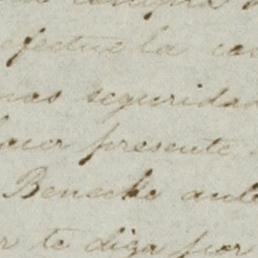 efectue la
mas seguridad
hacer presente
Beneche ante
te diga por